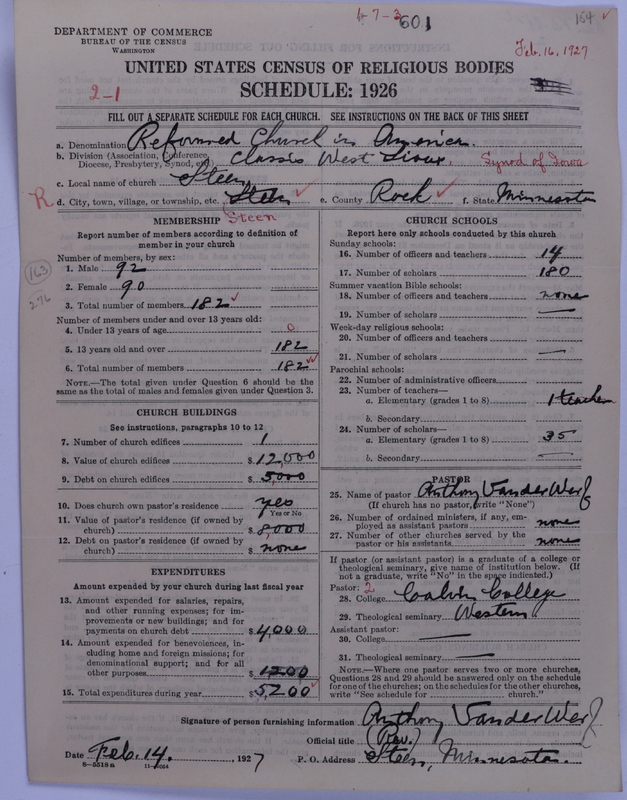 4-7-3
601
164 ✓
DEPARTMENT OF COMMERCE
BUREAU OF THE CENSUS
WASHINGTON
Feb. 16, 1927
UNITED STATES CENSUS OF RELIGIOUS BODIES
2-1
SCHEDULE: 1926
FILL OUT A SEPARATE SCHEDULE FOR EACH CHURCH. SEE INSTRUCTIONS ON THE BACK OF THIS SHEET
a. Denomination Reformed Church in America.
b. Division (Association, Conference, Diocese, Presbytery, Synod, etc.) Classis West Sioux. Synod of Iowa
c. Local name of church Steen
R d. City, town, village, or township, etc. Steen ✓ e. County Rock ✓ f. State Minnesota
Steen
MEMBERSHIP
Report number of members according to definition of
member in your church
Number of members, by sex:
1. Male 92
163
2. Female 90
276
3. Total number of members 182 ✓
Number of members under and over 13 years old:
4. Under 13 years of age 0
5. 13 years old and over 182
6. Total number of members 182 ✓
NOTE.—The total given under Question 6 should be
same as the total of males and females given under Question 3.
CHURCH BUILDINGS
See instructions, paragraphs 10 to 12
7. Number of church edifices 1
8. Value of church edifices $ 12,000
9. Debt on church edifices $ 5000
10. Does church own pastor's residence yes
Yes or No
11. Value of pastor's residence (if owned by
church) $ 8000
12. Debt on pastor's residence (if owned by
church) $ none
EXPENDITURES
Amount expended by your church during last fiscal year
13. Amount expended for salaries, repairs,
and other running expenses; for im-
provements or new buildings; and for
payments on church debt $ 4,000
14. Amount expended for benevolences, in-
cluding home and foreign missions; for
denominational support; and for all
other purposes $ 1200
15. Total expenditures during year $ 5,200 ✓
CHURCH SCHOOLS
Report here only schools conducted by this church
Sunday schools:
16. Number of officers and teachers 14
17. Number of scholars 180
Summer vacation Bible schools:
18. Number of officers and teachers none
19. Number of scholars —
Week-day religious schools:
20. Number of officers and teachers
21. Number of scholars —
Parochial schools:
22. Number of administrative officers
23. Number of teachers—
a. Elementary (grades 1 to 8) 1 teacher
b. Secondary
24. Number of scholars—
a. Elementary (grades 1 to 8) 35
b. Secondary —
PASTOR
25. Name of pastor Anthony Vander Werf
(If church has no pastor, write "None")
26. Number of ordained ministers, if any, em-
ployed as assistant pastors none
27. Number of other churches served by the
pastor or his assistants none
If pastor (or assistant pastor) is a graduate of a college or
theological seminary, give name of institution below. (If
not a graduate, write "No" in the space indicated.)
Pastor: 2
28. College Calvin College
29. Theological seminary Western
Assistant pastor:
30. College —
31. Theological seminary —
NOTE.—Where one pastor serves two or more churches,
Questions 28 and 29 should be answered only on the schedule
for one of the churches; on the schedules for the other churches,
write "See schedule for ........ church."
Signature of person furnishing information Anthony Vander Werf
Official title (Rev.)
Date Feb. 14. , 1927 P. O. Address Steen, Minnesota.